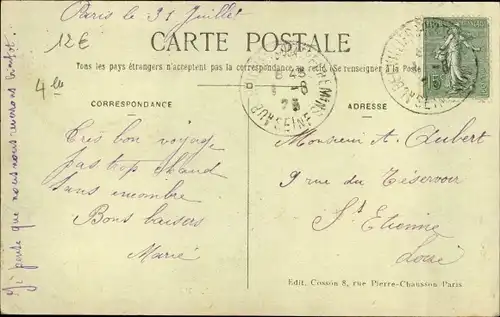 Paris le 31 Juillet
12€
4 le
CARTE POSTALE
Tous les pays étrangers n'acceptent pas la correspondance au recto (Se renseigner à la Poste
CORRESPONDANCE
ADRESSE
Très bon voyage
pas trop chaud
sans encombre
Bons baisers
Marie
Je pense que nous nous verrons bientôt.
Monsieur A. Aubert
9 rue du Réservoir
St Etienne
Loire
Edit. Cossón 8, rue Pierre-Chausson Paris